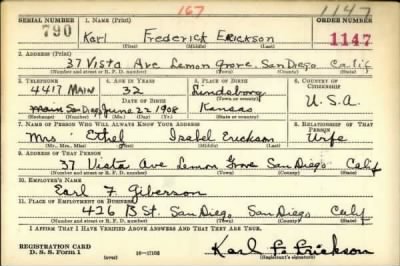 167 1147
SERIAL NUMBER 1. NAME (Print) ORDER NUMBER
790 Karl Frederick Erickson 1147
(First) (Middle) (Last)
2. ADDRESS (Print)
37 Vista Ave Lemon Grove. San Diego Calif
(Number and street or R. F. D. number) (Town) (County) (State)
3. TELEPHONE 4. AGE IN YEARS 5. PLACE OF BIRTH 6. COUNTRY OF CITIZENSHIP
4417 MAIN 32 Lindsborg
DATE OF BIRTH (Town or county)
Main San Diego June 22 1908 Kansas U.S.A.
(Exchange) (Number) (Mo.) (Day) (Yr.) (State or country)
7. NAME OF PERSON WHO WILL ALWAYS KNOW YOUR ADDRESS 8. RELATIONSHIP OF THAT PERSON
Mrs Ethel Isabel Erickson Wife
(Mr., Mrs., Miss) (First) (Middle) (Last)
9. ADDRESS OF THAT PERSON
37 Vista Ave Lemon Grove San Diego Calif
(Number and street or R. F. D. number) (Town) (County) (State)
10. EMPLOYER'S NAME
Earl F Giberson
11. PLACE OF EMPLOYMENT OR BUSINESS
426 B St. San Diego San Diego
(Number and street or R. F. D. number) (Town) (County) (State)
I AFFIRM THAT I HAVE VERIFIED ABOVE ANSWERS AND THAT THEY ARE TRUE.
REGISTRATION CARD
D. S. S. Form 1 (over) Karl F. Erickson
(Registrant's signature)